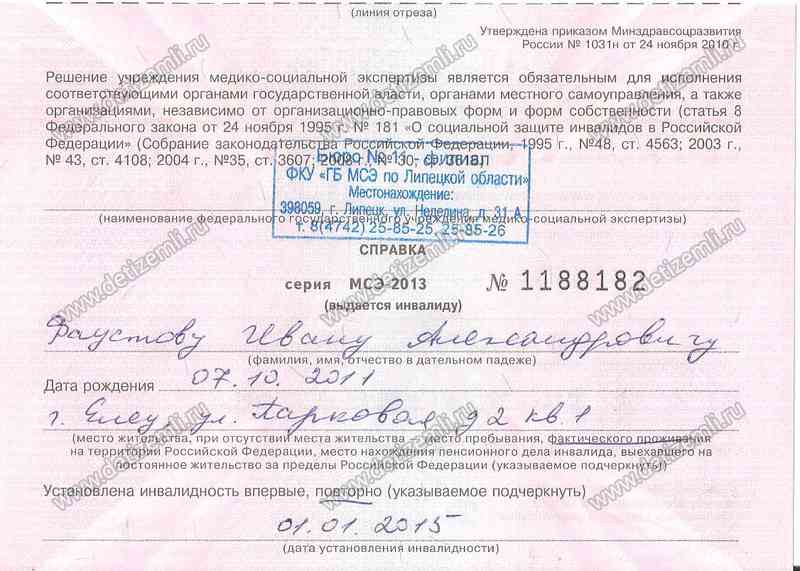 (линия отреза)
Утверждена приказом Минздравсоцразвития
России № 1031н от 24 ноября 2010 г.
Решение учреждения медико-социальной экспертизы является обязательным для исполнения
соответствующими органами государственной власти, органами местного самоуправления, а также
организациями, независимо от организационно-правовых форм и форм собственности (статья 8
Федерального закона от 24 ноября 1995 г. № 181 «О социальной защите инвалидов в Российской
Федерации» (Собрание законодательства Российской Федерации, 1995 г., №48, ст. 4563; 2003 г.,
№ 43, ст. 4108; 2004 г., №35, ст. 3607; 2008 г., № 30, ст. 3616)
Бюро № 11 - филиал
ФКУ «ГБ МСЭ по Липецкой области»
Местонахождение:
398059, г. Липецк, ул. Неделина, д. 31 А
т. 8(4742) 25-85-25, 25-85-26
(наименование федерального государственного учреждения медико-социальной экспертизы)
СПРАВКА
серия МСЭ-2013 № 1188182
(выдается инвалиду)
Фаустову Ивану Александровичу
(фамилия, имя, отчество в дательном падеже)
Дата рождения 07.10.2011
г. Елец, ул. Парковая д 2 кв. 1
(место жительства, при отсутствии места жительства — место пребывания, фактического проживания
на территории Российской Федерации, место нахождения пенсионного дела инвалида, выехавшего на
постоянное жительство за пределы Российской Федерации (указываемое подчеркнуть)
Установлена инвалидность впервые, повторно (указываемое подчеркнуть)
01.01.2015
(дата установления инвалидности)
www.detizemli.ru
www.detizemli.ru
www.detizemli.ru
www.detizemli.ru
www.detizemli.ru
www.detizemli.ru
www.detizemli.ru
www.detizemli.ru
www.detizemli.ru